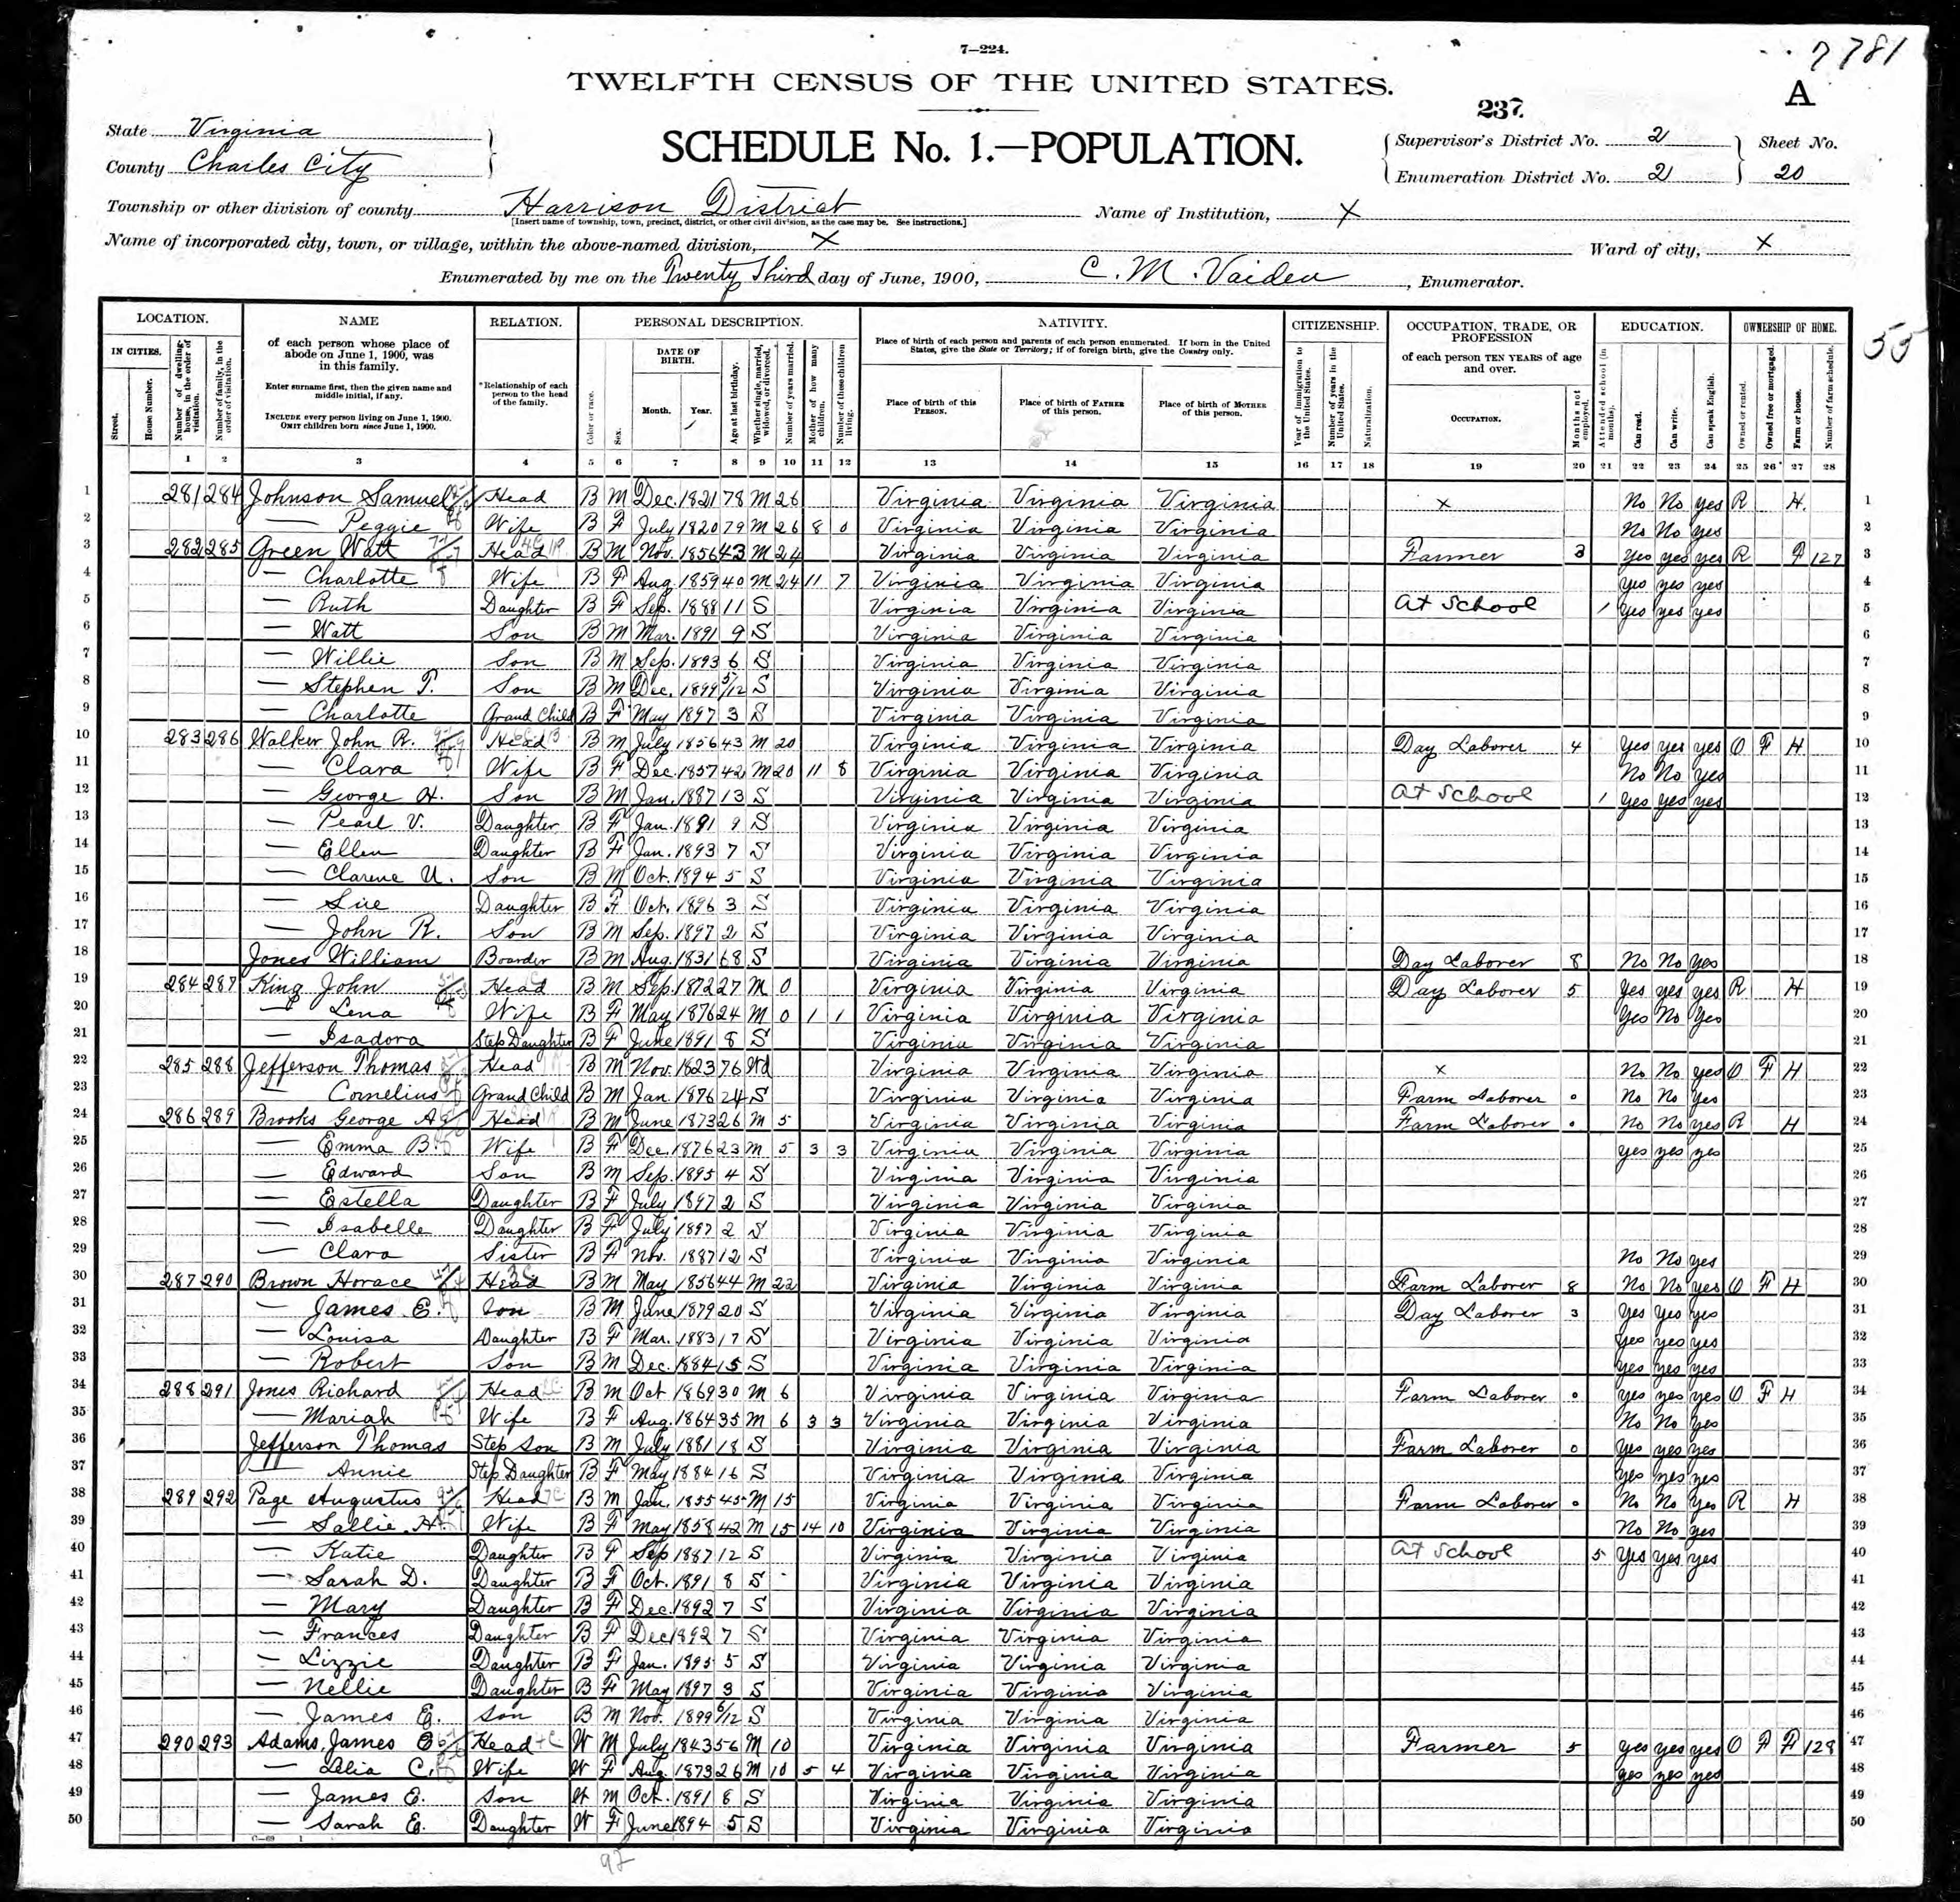 7—224.
7781
TWELFTH CENSUS OF THE UNITED STATES.
A
237.
State Virginia
County Charles City
SCHEDULE No. 1.—POPULATION.
Supervisor's District No. 2
Enumeration District No. 21
Sheet No.
20
Township or other division of county Harrison District
[Insert name of township, town, precinct, district, or other civil division, as the case may be. See instructions.]
Name of Institution, X
Name of incorporated city, town, or village, within the above-named division, X
Ward of city, X
Enumerated by me on the Twenty Third day of June, 1900, C. M. Vaiden, Enumerator.
55
LOCATION. NAME RELATION. PERSONAL DESCRIPTION. NATIVITY. CITIZENSHIP. OCCUPATION, TRADE, OR PROFESSION EDUCATION. OWNERSHIP OF HOME.
IN CITIES.
Street.
House Number.
Number of dwelling-house, in the order of visitation.
Number of family, in the order of visitation.
of each person whose place of abode on June 1, 1900, was in this family.
Enter surname first, then the given name and middle initial, if any.
INCLUDE every person living on June 1, 1900.
OMIT children born since June 1, 1900.
Relationship of each person to the head of the family.
Color or race.
Sex.
DATE OF BIRTH.
Month. Year.
Age at last birthday.
Whether single, married, widowed, or divorced.
Number of years married.
Mother of how many children.
Number of these children living.
Place of birth of each person and parents of each person enumerated. If born in the United States, give the State or Territory; if of foreign birth, give the Country only.
Place of birth of this PERSON.
Place of birth of FATHER of this person.
Place of birth of MOTHER of this person.
Year of immigration to the United States.
Number of years in the United States.
Naturalization.
of each person TEN YEARS of age and over.
OCCUPATION.
Months not employed.
Attended school (in months).
Can read.
Can write.
Can speak English.
Owned or rented.
Owned free or mortgaged.
Farm or house.
Number of farm schedule.
1 2 3 4 5 6 7 8 9 10 11 12 13 14 15 16 17 18 19 20 21 22 23 24 25 26 27 28
1 281 284 Johnson Samuel Head B M Dec. 1821 78 M 26 Virginia Virginia Virginia X No No Yes R H. 1
2 — Peggie Wife B F July 1820 79 M 26 8 0 Virginia Virginia Virginia No No Yes 2
3 282 285 Green Watt Head B M Nov. 1856 43 M 24 Virginia Virginia Virginia Farmer 3 Yes Yes Yes R F 127 3
4 — Charlotte Wife B F Aug. 1859 40 M 24 11 7 Virginia Virginia Virginia Yes Yes Yes 4
5 — Ruth Daughter B F Sep. 1888 11 S Virginia Virginia Virginia At School 1 Yes Yes Yes 5
6 — Watt Son B M Mar. 1891 9 S Virginia Virginia Virginia 6
7 — Willie Son B M Sep. 1893 6 S Virginia Virginia Virginia 7
8 — Stephen T. Son B M Dec. 1899 5/12 S Virginia Virginia Virginia 8
9 — Charlotte Grand Child B F May 1897 3 S Virginia Virginia Virginia 9
10 283 286 Walker John R. Head B M July 1856 43 M 20 Virginia Virginia Virginia Day Laborer 4 Yes Yes Yes O F H 10
11 — Clara Wife B F Dec. 1857 42 M 20 11 8 Virginia Virginia Virginia No No Yes 11
12 — George H. Son B M Jan. 1887 13 S Virginia Virginia Virginia At School 1 Yes Yes Yes 12
13 — Pearl V. Daughter B F Jan. 1891 9 S Virginia Virginia Virginia 13
14 — Ellen Daughter B F Jan. 1893 7 S Virginia Virginia Virginia 14
15 — U. Son B M Oct. 1894 5 S Virginia Virginia Virginia 15
16 — Sue Daughter B F Oct. 1896 3 S Virginia Virginia Virginia 16
17 — John R. Son B M Sep. 1897 2 S Virginia Virginia Virginia 17
18 Jones William Boarder B M Aug. 1831 68 S Virginia Virginia Virginia Day Laborer 8 No No Yes 18
19 284 287 King John Head B M Sep. 1872 27 M 0 Virginia Virginia Virginia Day Laborer 5 Yes Yes Yes R H 19
20 — Lena Wife B F May 1876 24 M 0 1 1 Virginia Virginia Virginia Yes No Yes 20
21 — Isadora Step Daughter B F June 1891 8 S Virginia Virginia Virginia 21
22 285 288 Jefferson Thomas Head B M Nov. 1823 76 Wd Virginia Virginia Virginia X No No Yes O F H 22
23 — Cornelius Grand Child B M Jan 1876 24 S Virginia Virginia Virginia Farm Laborer 0 No No Yes 23
24 286 289 Brooks George A. Head B M June 1873 26 M 5 Virginia Virginia Virginia Farm Laborer 0 No No Yes R H 24
25 — Emma B. Wife B F Dec. 1876 23 M 5 3 3 Virginia Virginia Virginia Yes Yes Yes 25
26 — Edward Son B M Sep. 1895 4 S Virginia Virginia Virginia 26
27 — Estella Daughter B F July 1897 2 S Virginia Virginia Virginia 27
28 — Isabelle Daughter B F July 1897 2 S Virginia Virginia Virginia 28
29 — Clara Sister B F Nov. 1887 12 S Virginia Virginia Virginia No No Yes 29
30 287 290 Brown Horace Head B M May 1856 44 M 22 Virginia Virginia Virginia Farm Laborer 8 No No Yes O F H 30
31 — James E. Son B M June 1879 20 S Virginia Virginia Virginia Day Laborer 3 Yes Yes Yes 31
32 — Louisa Daughter B F Mar. 1883 17 S Virginia Virginia Virginia Yes Yes Yes 32
33 — Robert Son B M Dec. 1884 15 S Virginia Virginia Virginia Yes Yes Yes 33
34 288 291 Jones Richard Head B M Oct 1869 30 M 6 Virginia Virginia Virginia Farm Laborer 0 Yes Yes Yes O F H 34
35 — Mariah Wife B F Aug. 1864 35 M 6 3 3 Virginia Virginia Virginia No No Yes 35
36 Jefferson Thomas Step Son B M July 1881 18 S Virginia Virginia Virginia Farm Laborer 0 Yes Yes Yes 36
37 — Annie Step Daughter B F May 1884 16 S Virginia Virginia Virginia Yes Yes Yes 37
38 289 292 Page Augustus Head B M Jan. 1855 45 M 15 Virginia Virginia Virginia Farm Laborer 0 No No Yes R H 38
39 — Sallie H. Wife B F May 1858 42 M 15 14 10 Virginia Virginia Virginia No No Yes 39
40 — Katie Daughter B F Sep 1887 12 S Virginia Virginia Virginia At School 5 Yes Yes Yes 40
41 — Sarah D. Daughter B F Oct. 1891 8 S Virginia Virginia Virginia 41
42 — Mary Daughter B F Dec. 1892 7 S Virginia Virginia Virginia 42
43 — Frances Daughter B F Dec 1892 7 S Virginia Virginia Virginia 43
44 — Lizzie Daughter B F Jan. 1895 5 S Virginia Virginia Virginia 44
45 — Nellie Daughter B F May 1897 3 S Virginia Virginia Virginia 45
46 — James E. Son B M Nov. 1899 6/12 S Virginia Virginia Virginia 46
47 290 293 Adams, James E Head W M July 1843 56 M 10 Virginia Virginia Virginia Farmer 5 Yes Yes Yes O F F 128 47
48 — Lelia C. Wife W F Aug. 1873 26 M 10 5 4 Virginia Virginia Virginia Yes Yes Yes 48
49 — James E. Son W M Oct. 1891 8 S Virginia Virginia Virginia 49
50 — Sarah E. Daughter W F June 1894 5 S Virginia Virginia Virginia 50
C—69 1
97